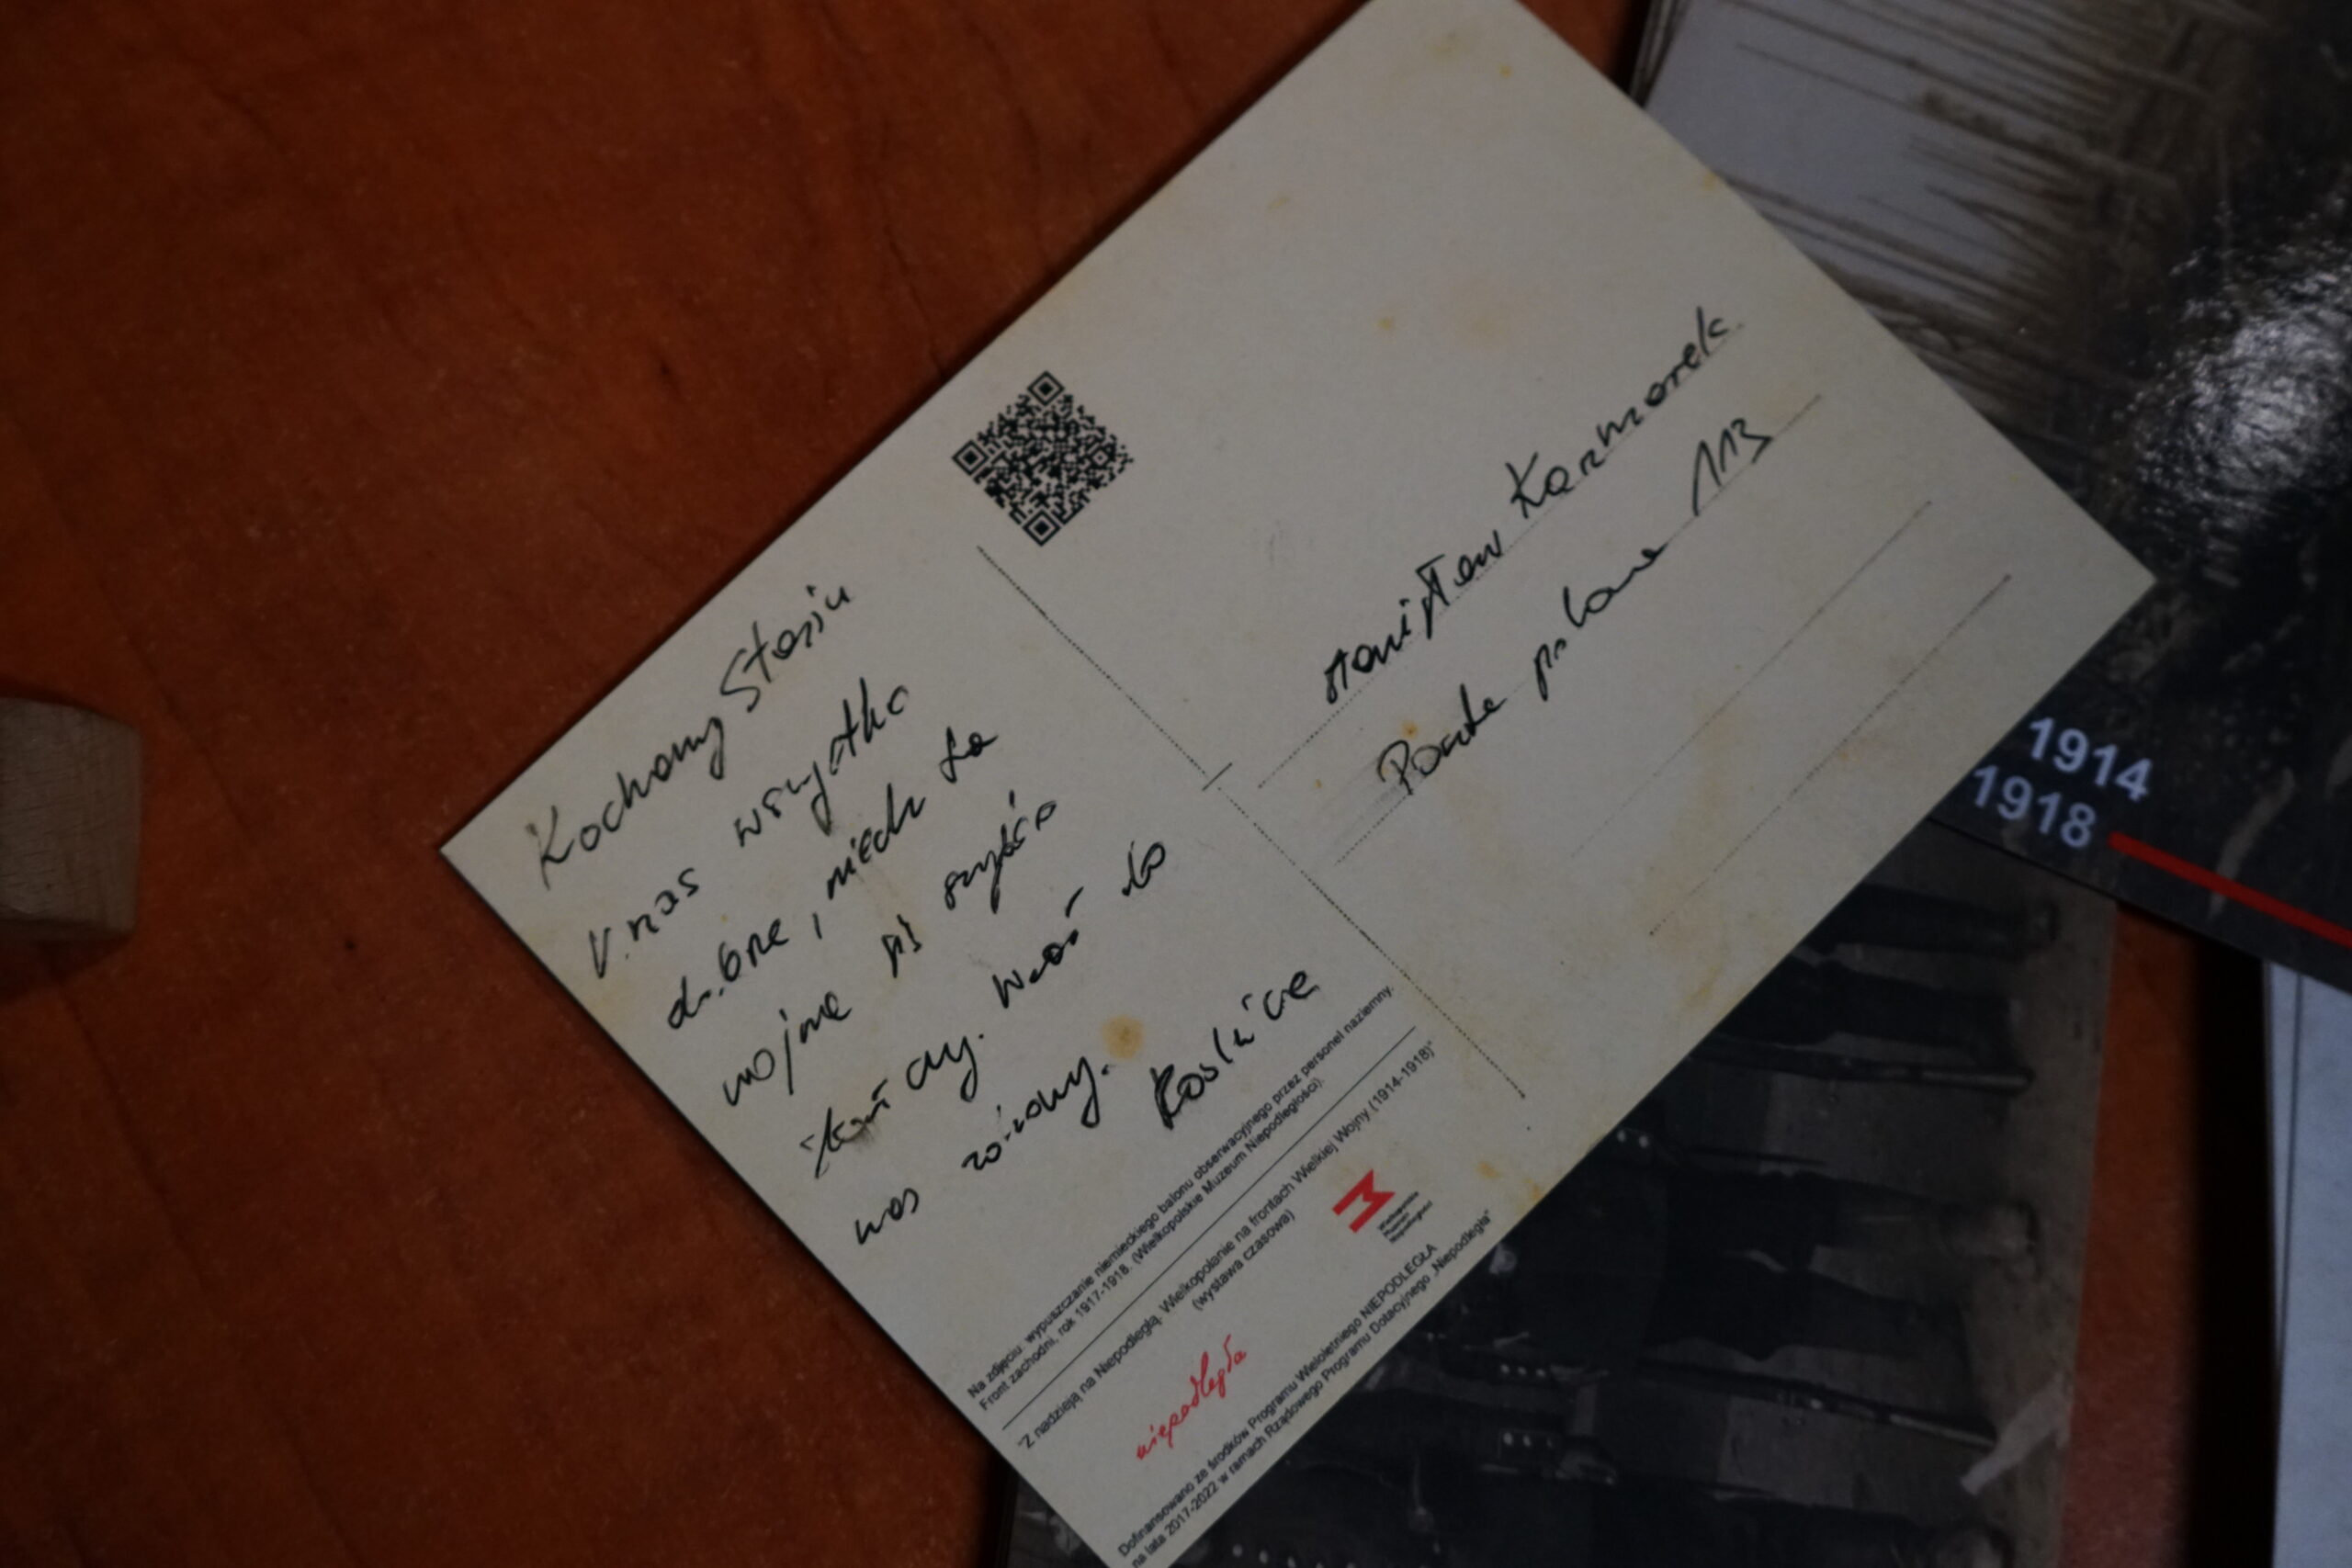 Kochany Stasiu
U nas wszystko
dobrze, niech ta
wojna się szybko
skończy. Wróć do
nas zdrowy.
Stanisław Kaczmarek
Poczta polowa 113
Na zdjęciu: wypuszczanie niemieckiego balonu obserwacyjnego przez personel naziemny.
Front zachodni, rok 1917-1918. (Wielkopolskie Muzeum Niepodległości).
"Z nadzieją na Niepodległą. Wielkopolanie na frontach Wielkiej Wojny (1914-1918)"
(wystawa czasowa)
niepodległa
Wielkopolskie
Muzeum
Niepodległości
Dofinansowano ze środków Programu Wieloletniego NIEPODLEGŁA
na lata 2017-2022 w ramach Rządowego Programu Dotacyjnego „Niepodległa"
1914
1918